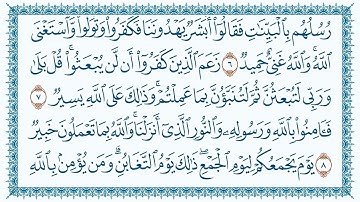 رُسُلُهُم بِالْبَيِّنَٰتِ فَقَالُوٓا۟ أَبَشَرٌ يَهْدُونَنَا فَكَفَرُوا۟ وَتَوَلَّوا۟ ۚ وَّٱسْتَغْنَى
ٱللَّهُ ۚ وَٱللَّهُ غَنِىٌّ حَمِيدٌ ٦ زَعَمَ ٱلَّذِينَ كَفَرُوٓا۟ أَن لَّن يُبْعَثُوا۟ ۚ قُلْ بَلَىٰ
وَرَبِّى لَتُبْعَثُنَّ ثُمَّ لَتُنَبَّؤُنَّ بِمَا عَمِلْتُمْ ۚ وَذَٰلِكَ عَلَى ٱللَّهِ يَسِيرٌ ٧
فَـَٔامِنُوا۟ بِٱللَّهِ وَرَسُولِهِۦ وَٱلنُّورِ ٱلَّذِىٓ أَنزَلْنَا ۚ وَٱللَّهُ بِمَا تَعْمَلُونَ خَبِيرٌ
٨ يَوْمَ يَجْمَعُكُمْ لِيَوْمِ ٱلْجَمْعِ ۖ ذَٰلِكَ يَوْمُ ٱلتَّغَابُنِ ۗ وَمَن يُؤْمِنۢ بِٱللَّهِ